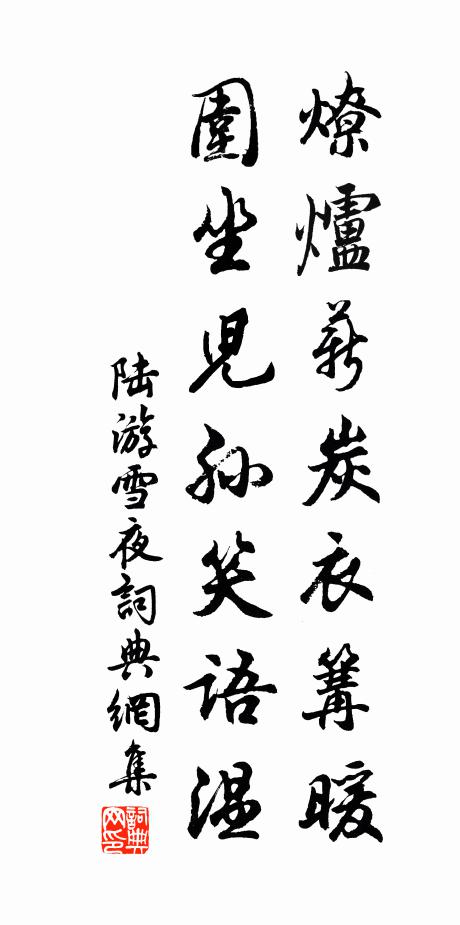 燎爐薪炭衣篝暖
圍坐兒孫笑語温
陆游雪夜詞典網集
詞典网印